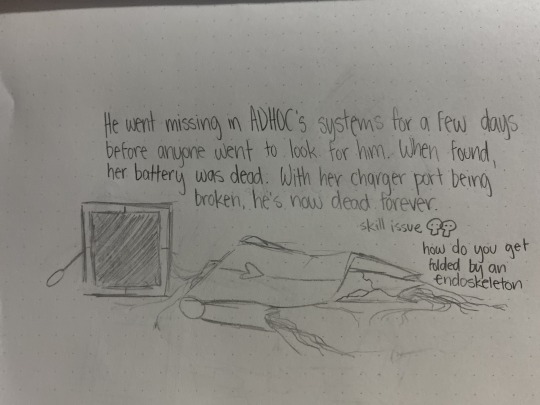 He went missing in ADHOC's systems for a few days
before anyone went to look for him. When found,
her battery was dead. With her charger port being
broken, he's now dead forever.
skill issue 💀💀
how do you get
folded by an
endoskeleton